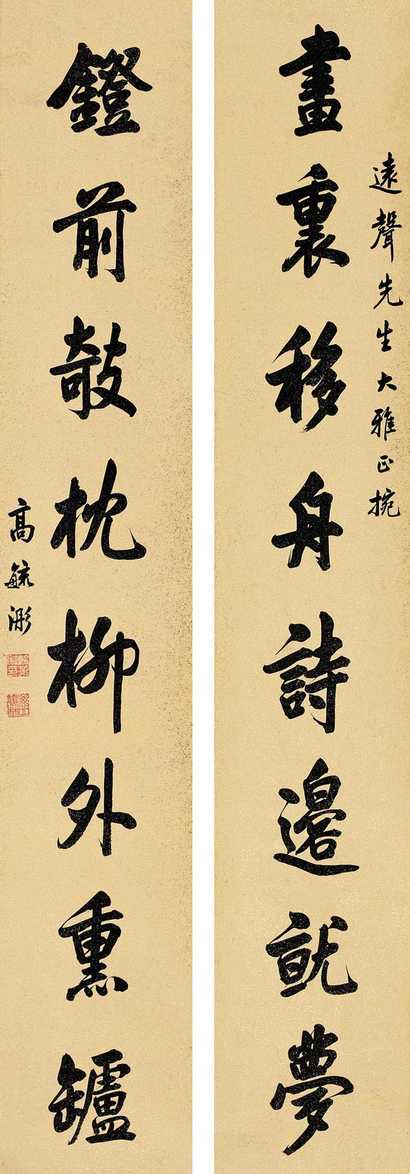 遠聲先生大雅正捥
畫裏移舟詩邊就夢
鐙前攲枕柳外熏罏
高毓浵